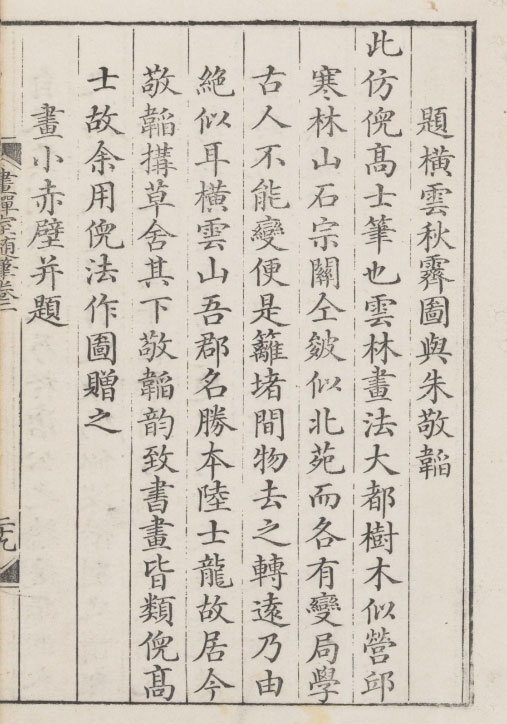 題橫雲秋霽圖與朱敬韜
此仿倪高士筆也雲林畫法大都樹木似營邱
寒林山石宗關仝皴似北苑而各有變局學
古人不能變便是籬堵間物去之轉遠乃由
絕似耳橫雲山吾郡名勝本陸士龍故居今
敬韜搆草舍其下敬韜韵致書畫皆類倪高
士故余用倪法作圖贈之
畫小赤壁并題
畫禪室隨筆卷二
二九